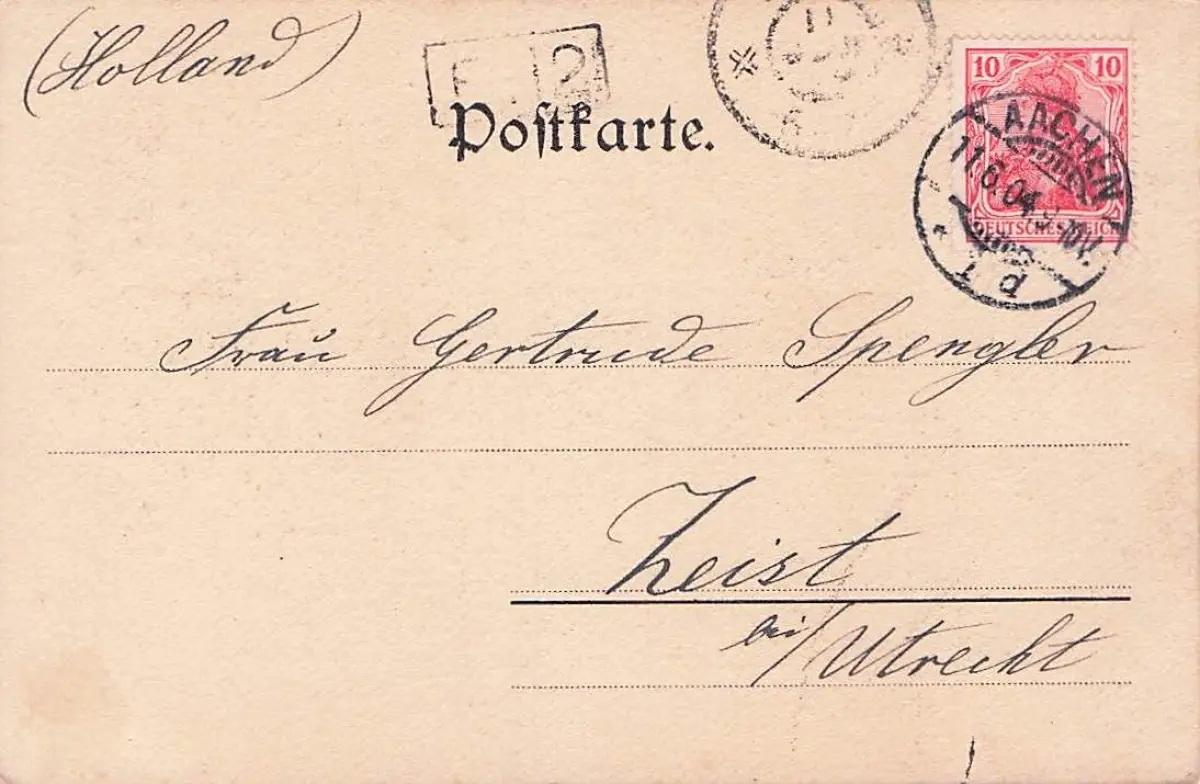 (Holland)
2
Poſtkarte.
10 10
AACHEN
11.6.04
DEUTSCHES REICH
d
Frau Gertrude Spengler
Zeist
bei/Utrecht